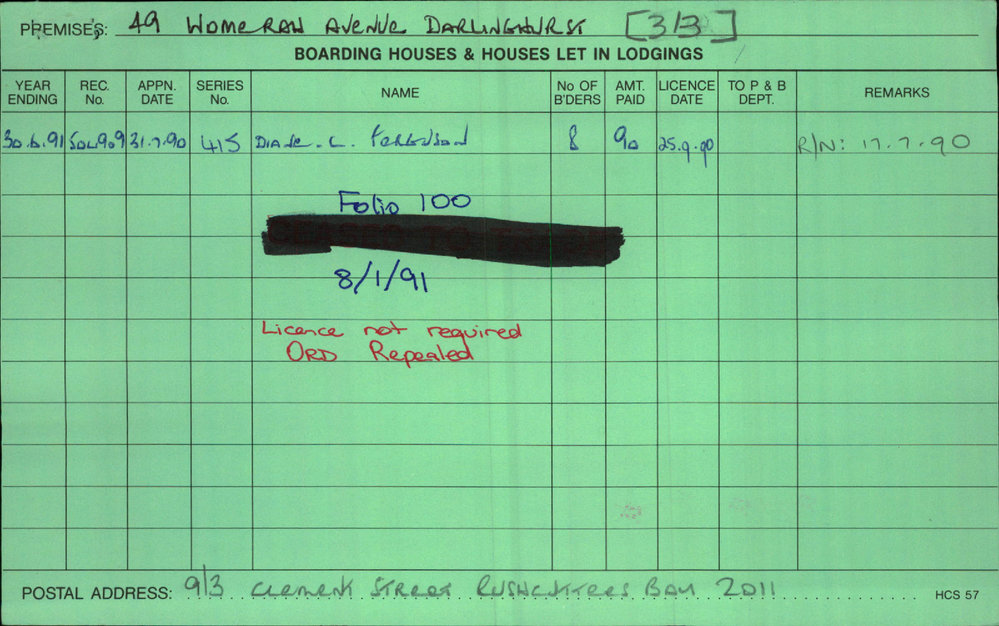 PREMISES: 49 WOMERAH AVENUE DARLINGHURST [3/3]
BOARDING HOUSES & HOUSES LET IN LODGINGS
YEAR ENDING REC. No. APPN. DATE SERIES No. NAME No OF B'DERS AMT. PAID LICENCE DATE TO P & B DEPT. REMARKS
30.6.91 504909 31.7.90 415 DIANE. C. FERGUSON 8 90 25.9.90 R/N: 17.7.90
Folio 100
8/1/91
Licence not required
ORD Repealed
POSTAL ADDRESS: 9/3 CLEMENT STREET RUSHCUTTERS BAY 2011 HCS 57